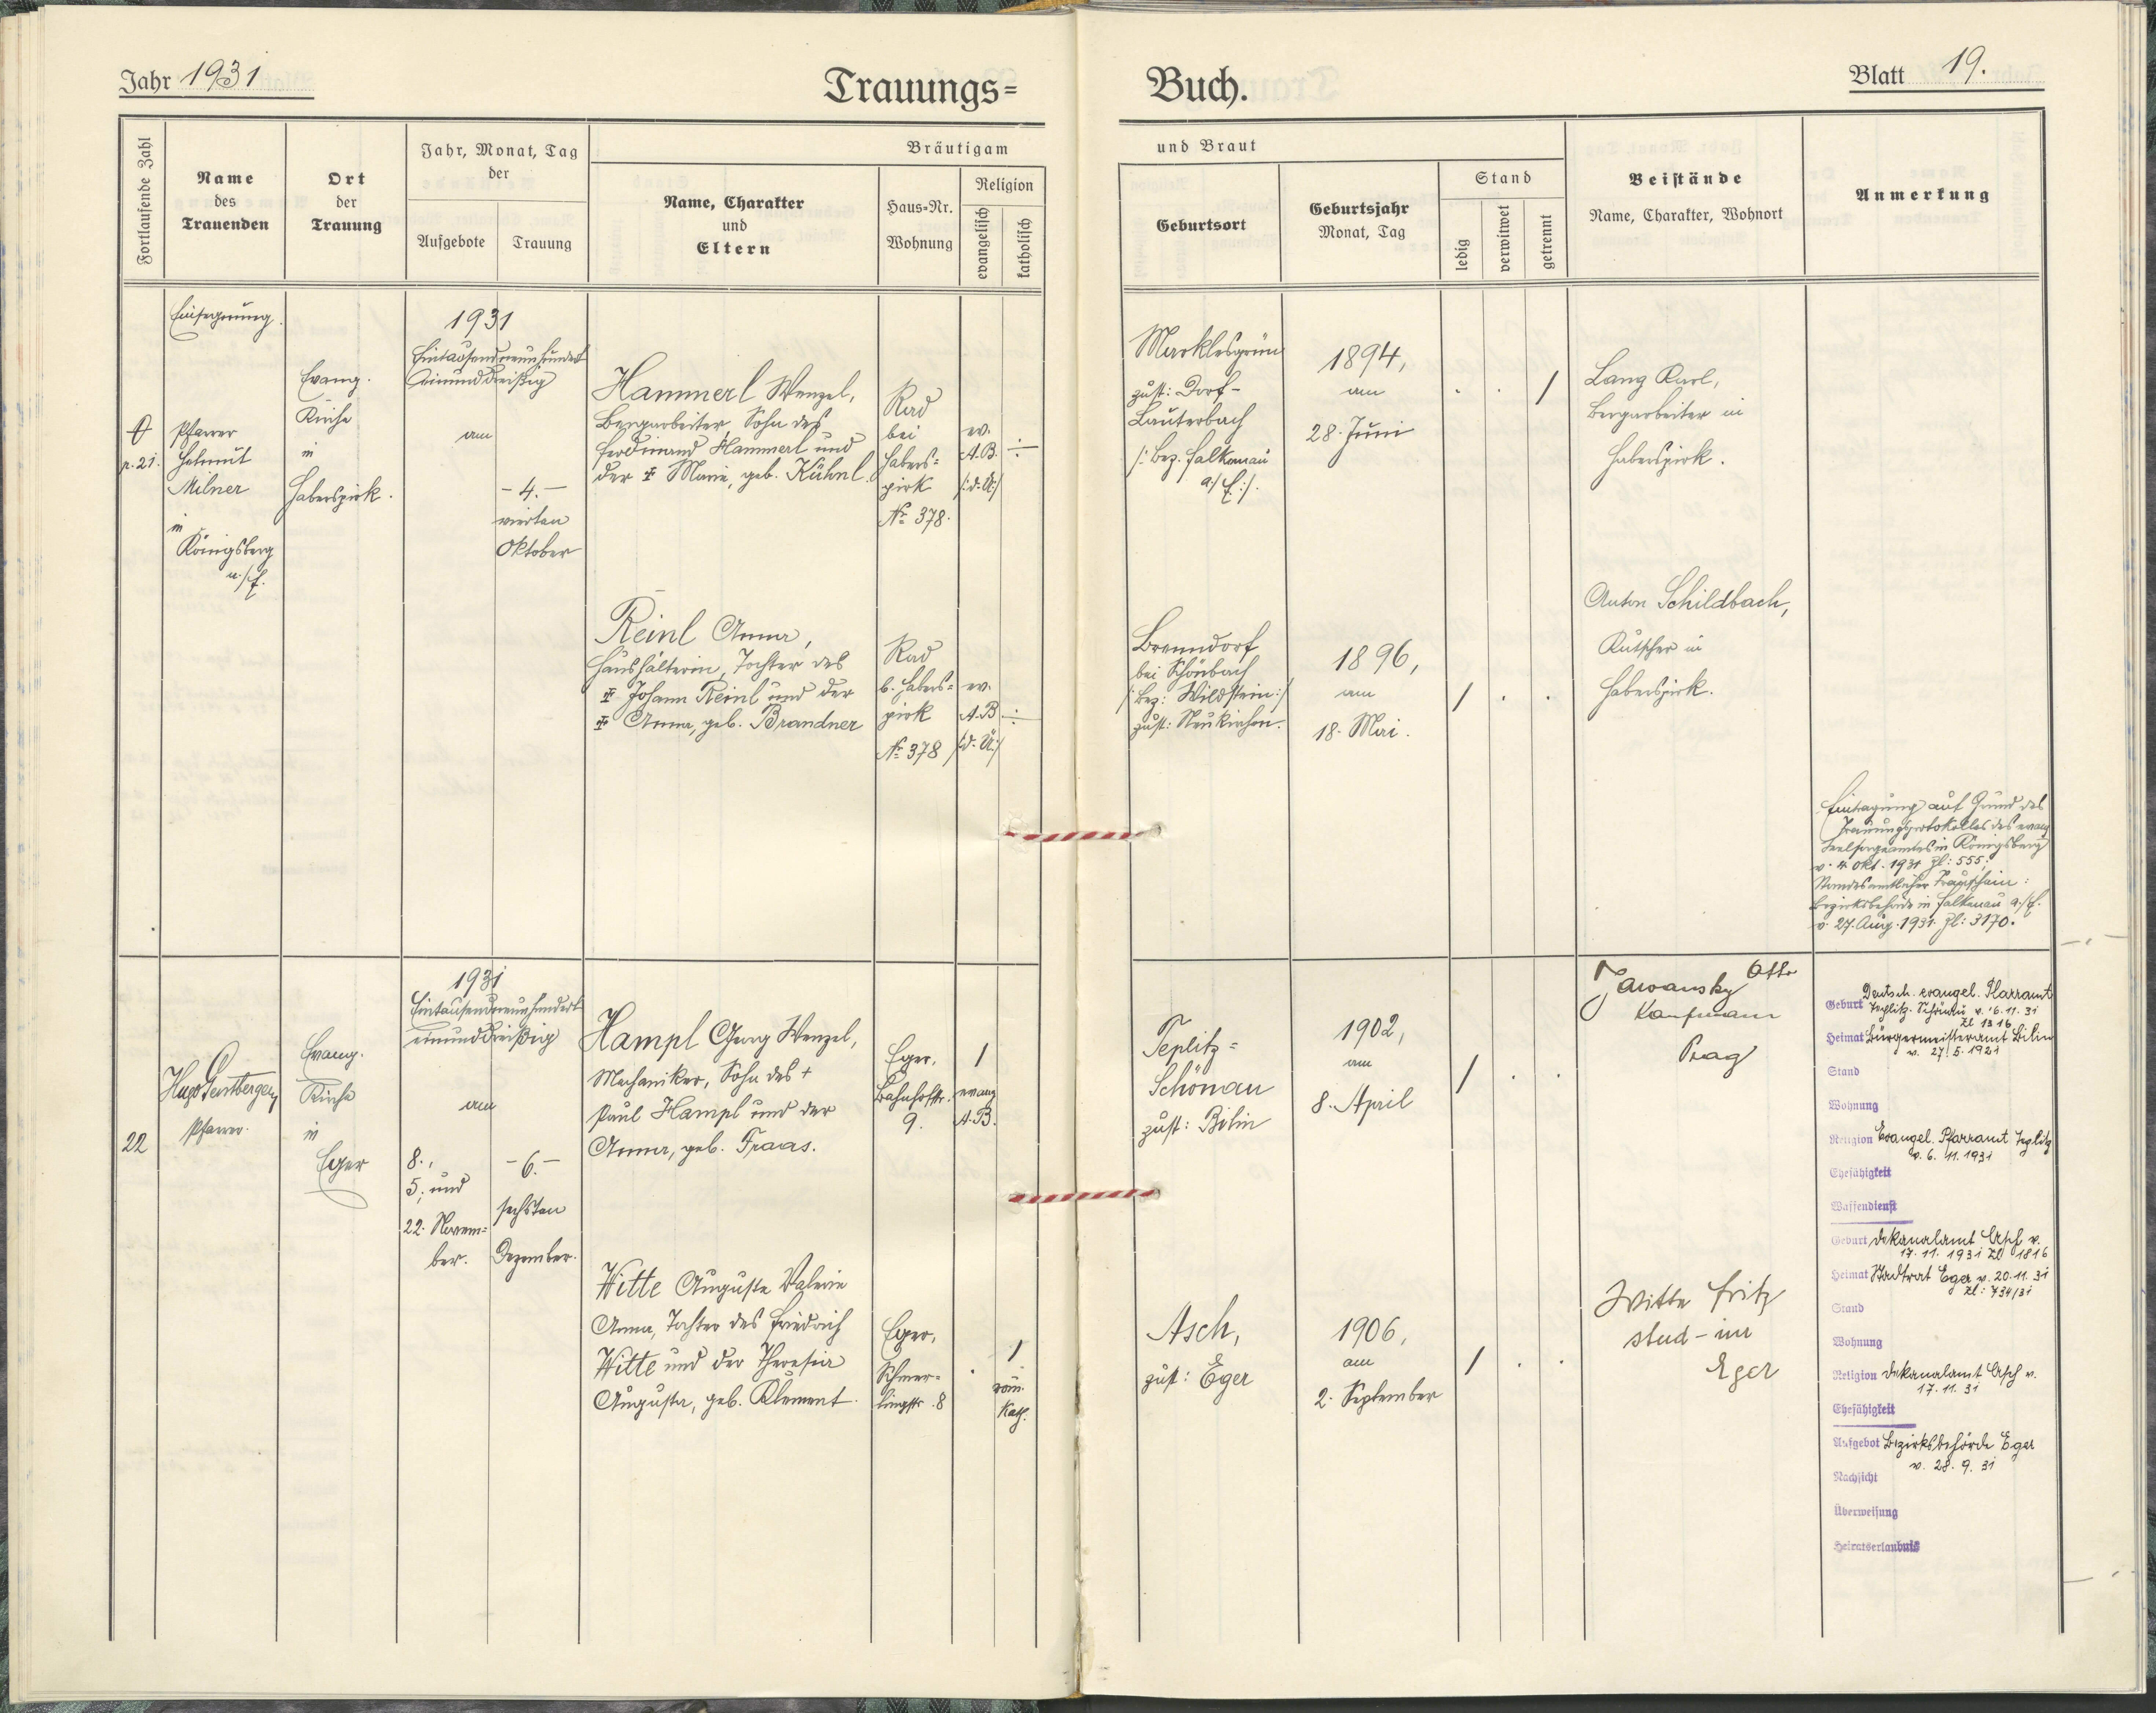 Jahr 1931
Trauungs=
Buch.
Blatt 19.
Fortlaufende Zahl
Name
des
Trauenden
Ort
der
Trauung
Jahr, Monat, Tag
der
Aufgebote
Trauung
Bräutigam
Name, Charakter
und
Eltern
Haus=Nr.
Wohnung
Religion
evangelisch
katholisch
und Braut
Geburtsort
Geburtsjahr
Monat, Tag
Stand
ledig
verwitwet
getrennt
Beistände
Name, Charakter, Wohnort
Anmerkung
Einsegnung.
p. 21.
Pfarrer
Helmut
Milner
in
Königsberg
a./E.
Evang.
Kirche
in
Haberspirk.
1931
Eintausendneunhundert
einunddreißig
am
- 4. -
vierten
Oktober
Hammerl Wenzel,
Bergarbeiter, Sohn des
Ferdinand Hammerl und
der Marie, geb. Kühnl.
Rad
bei
Habers=
pirk
Nr. 378.
ev.
A.B.
/:d. Ü:/
Marklesgrün
zust: Dorf-
Lauterbach
/: Bez. Falkenau
a/E:/.
1894,
am
28. Juni
/
Lang Karl,
Bergarbeiter in
Haberspirk.
Reinl Anna,
Haushälterin, Tochter des
Johann Reinl und der
Anna, geb. Brandner
Rad
b. Habers=
pirk
Nr. 378
ev.
A.B
/:d. Ü:/
Brenndorf
bei Schönbach
/:Bez: Wildstein:/
zust: Neukirchen.
1896,
am
18. Mai.
/ . .
Anton Schildbach,
Kutscher in
Haberspirk.
Eintragung auf Grund des
Trauungsprotokolles des evang
Seelsorgeamtes in Königsberg
v. 4. Okt. 1931 Zl: 555;
Standesamtlicher Trauschein:
Bezirksbehörde in Falkenau a./E.
v. 27. Aug. 1931. Zl: 3170.
22
Hugo Gerstberger,
Pfarrer.
Evang.
Kirche
in
Eger
1931
Eintausendneunhundert
einunddreißig
am
8.,
5; und
22. Novem=
ber.
- 6. -
sechsten
Dezember.
Hampl Georg Wenzel,
Mechaniker, Sohn des +
Paul Hampl und der
Anna, geb. Fraas.
Eger,
Bahnhofstr.
9.
/
evang
A.B.
Teplitz=
Schönau
zust: Bilin
1902,
am
8. April
/ . .
Jawansky Otto
Kaufmann
Prag
Witte Auguste Valerie
Anna, Tochter des Friedrich
Witte und der Theresia
Augusta, geb. Klement.
Eger,
Schmer=
lingstr. 8
/
röm.
Kath.
Asch,
zust: Eger
1906,
am
2. September
/ . .
Witte Fritz
stud-in
Eger
Geburt Deutsch. evangel. Pfarramt
Teplitz-Schönau v. 16.11.31
Zl 1316
Heimat Bürgermeisteramt Bilin
v. 27.5.1921
Stand
Wohnung
Religion Evangel. Pfarramt Teplitz
v. 6. 11. 1931
Ehefähigkeit
Waffendienst
Geburt Dekanalamt Asch v.
17. 11. 1931 Zl 1816
Heimat Stadtrat Eger v. 20.11.31
Zl: 734/31
Stand
Wohnung
Religion Dekanalamt Asch v.
17. 11. 31
Ehefähigkeit
Aufgebot Bezirksbehörde Eger
v. 28. 9. 31
Nachsicht
Überweisung
Heiratserlaubnis